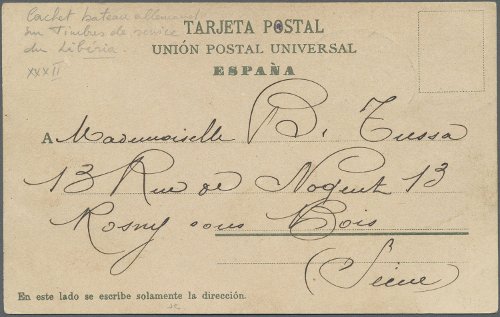 Cachet bateau allemand
sur Timbres de service
du Libéria.
XXXII
TARJETA POSTAL
UNIÓN POSTAL UNIVERSAL
ESPAÑA
A Mademoiselle B. Tussa
13 Rue de Nogent 13
Rosny sous Bois
(Seine)
En este lado se escribe solamente la dirección.